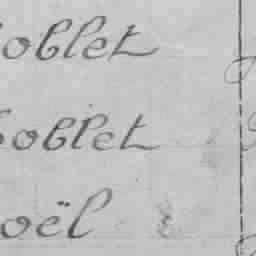 oblet
oblet
oël